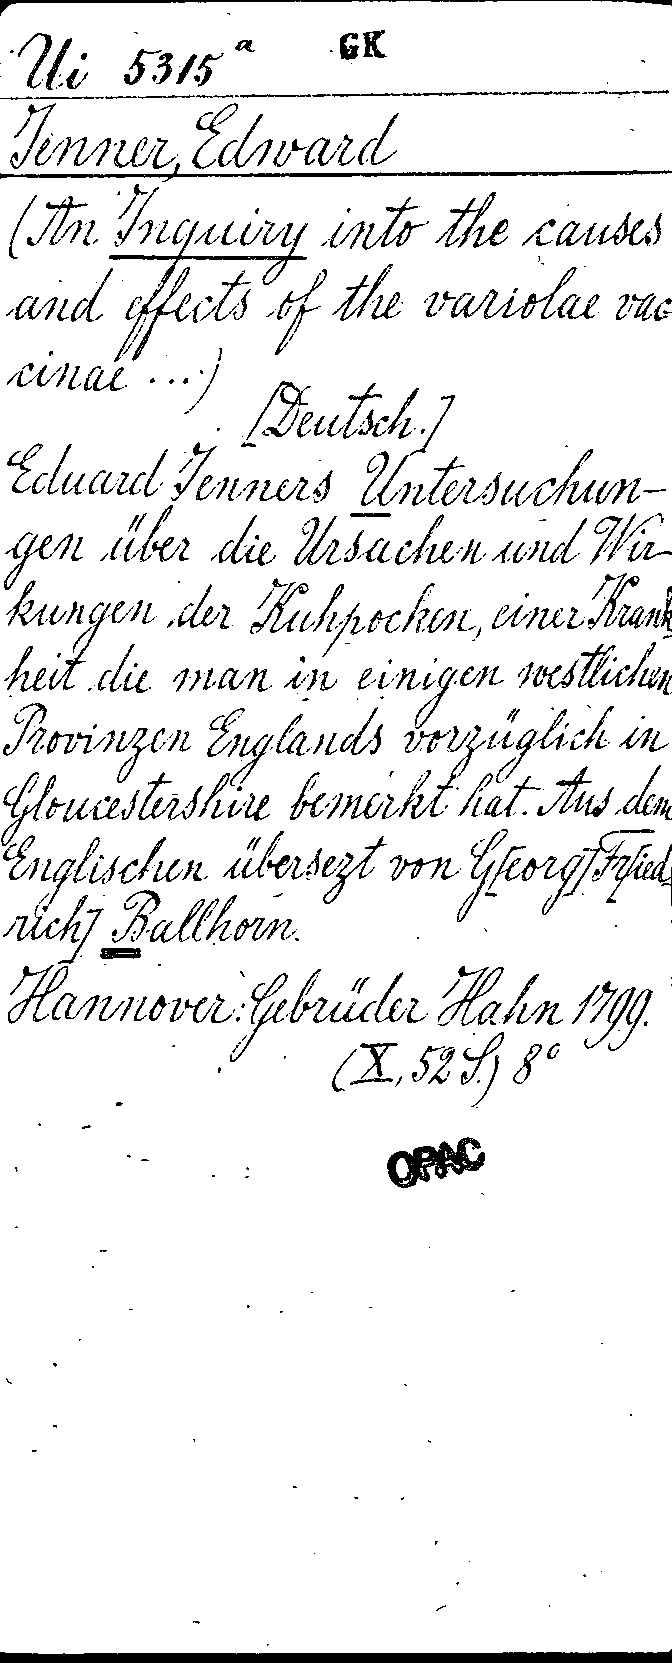 Ui 5315 a GK
Jenner, Edward
(An Inquiry into the causes
and effects of the variolae vac-
cinae ...)
[Deutsch.]
Eduard Jenners Untersuchun-
gen über die Ursachen und Wir-
kungen der Kuhpocken, einer Krank
heit die man in einigen westlichen
Provinzen Englands vorzüglich in
Gloucestershire bemerkt hat. Aus dem
Englischen übersezt von G[eorg] Fr[ied-
rich] Ballhorn.
Hannover: Gebrüder Hahn 1799.
(X, 52 S.) 8°
OPAC